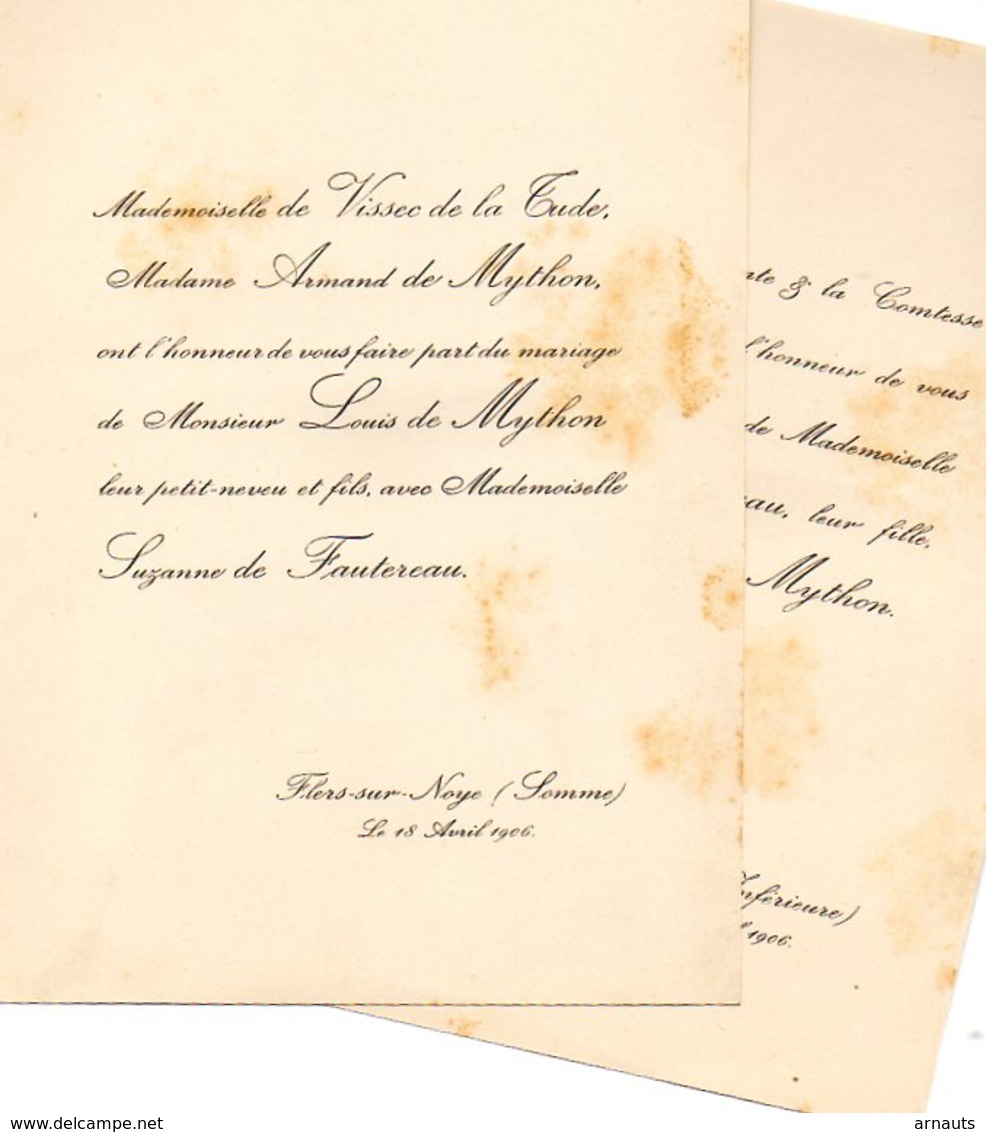 Mademoiselle de Vissec de la Tude,
Madame Armand de Mython,
ont l'honneur de vous faire part du mariage
de Monsieur Louis de Mython
leur petit-neveu et fils, avec Mademoiselle
Suzanne de Fautereau.
Flers-sur-Noye (Somme)
Le 18 Avril 1906.
nte & la Comtesse
l'honneur de vous
de Mademoiselle
eau, leur fille,
Mython.
Inférieure)
l 1906.
delcampe.net
arnauts